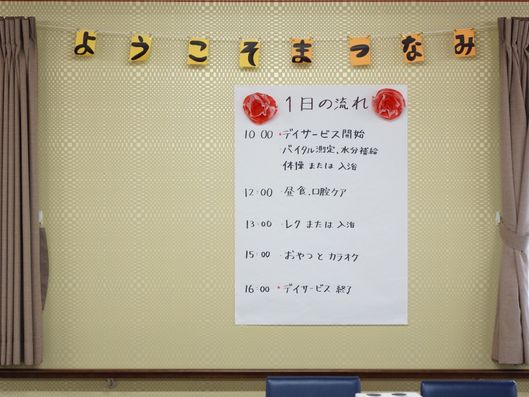 ようこそまつなみ
1日の流れ
10:00 •デイサービス開始
バイタル測定、水分補給
体操 または 入浴
12:00 昼食、口腔ケア
13:00 レク または 入浴
15:00 おやつと カラオケ
16:00 •デイサービス 終了